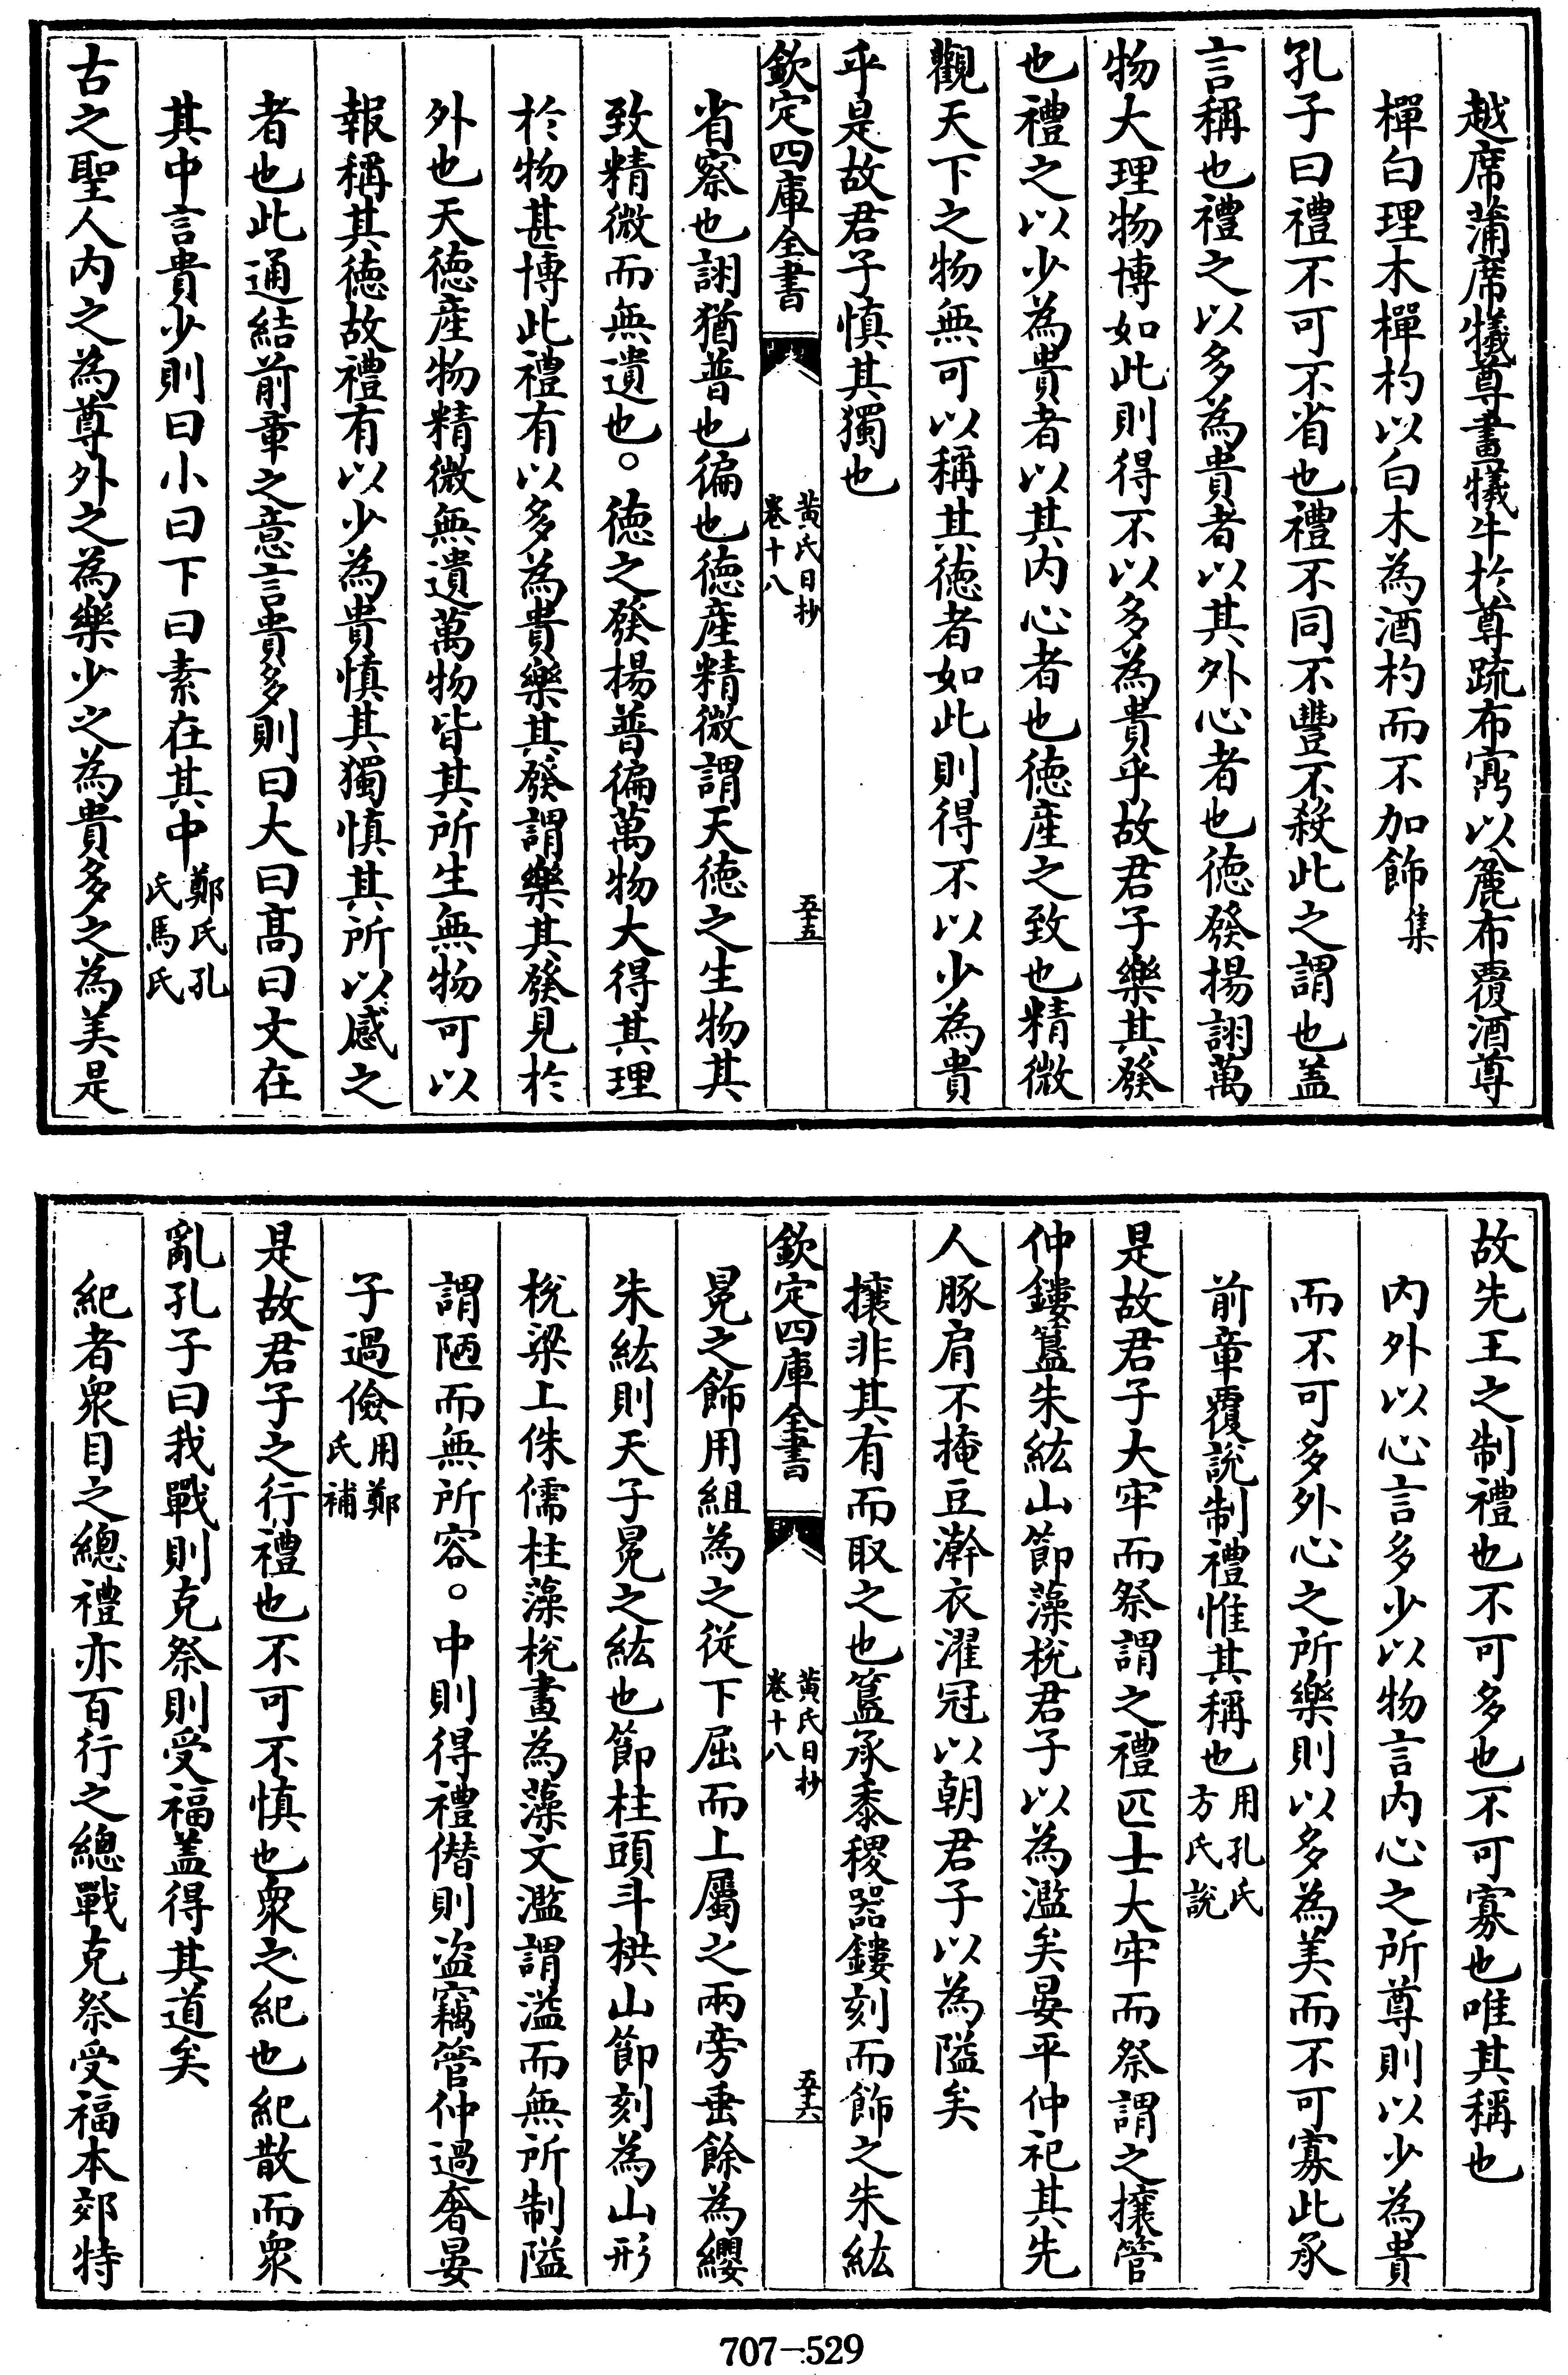 越席蒲席犧尊畫犧牛於尊疏布鼏以麄布覆酒尊
樿白理木樿杓以白木為酒杓而不加飾集
孔子曰禮不可不省也禮不同不豐不殺此之謂也盖
言稱也禮之以多為貴者以其外心者也徳發揚詡萬
物大理物博如此則得不以多為貴乎故君子樂其發
也禮之以少為貴者以其内心者也徳産之致也精微
觀天下之物無可以稱其徳者如此則得不以少為貴
乎是故君子慎其獨也
欽定四庫全書
黄氏日抄
卷十八
五五
省察也詡猶普也徧也徳産精微謂天徳之生物其
致精微而無遺也。徳之發揚普徧萬物大得其理
於物甚博此禮有以多為貴樂其發謂樂其發見於
外也天徳産物精微無遺萬物皆其所生無物可以
報稱其徳故禮有以少為貴慎其獨慎其所以感之
者也此通結前章之意言貴多則曰大曰髙曰文在
其中言貴少則曰小曰下曰素在其中鄭氏孔
氏馬氏
古之聖人内之為尊外之為樂少之為貴多之為美是
故先王之制禮也不可多也不可寡也唯其稱也
内外以心言多少以物言内心之所尊則以少為貴
而不可多外心之所樂則以多為美而不可寡此承
前章覆說制禮惟其稱也用孔氏
方氏說
是故君子大牢而祭謂之禮匹士大牢而祭謂之攘管
仲鏤簋朱紘山節藻梲君子以為濫矣晏平仲祀其先
人豚肩不掩豆澣衣濯冠以朝君子以為隘矣
攘非其有而取之也簋承黍稷器鏤刻而飾之朱紘
欽定四庫全書
黄氏日抄
卷十八
五六
冕之飾用組為之從下屈而上屬之兩旁垂餘為纓
朱紘則天子冕之紘也節柱頭斗栱山節刻為山形
梲梁上侏儒柱藻梲畫為藻文濫謂溢而無所制隘
謂陋而無所容。中則得禮僭則盗竊管仲過奢晏
子過儉用鄭
氏補
是故君子之行禮也不可不慎也衆之紀也紀散而衆
亂孔子曰我戰則克祭則受福盖得其道矣
紀者衆目之總禮亦百行之總戰克祭受福本郊特
707-529